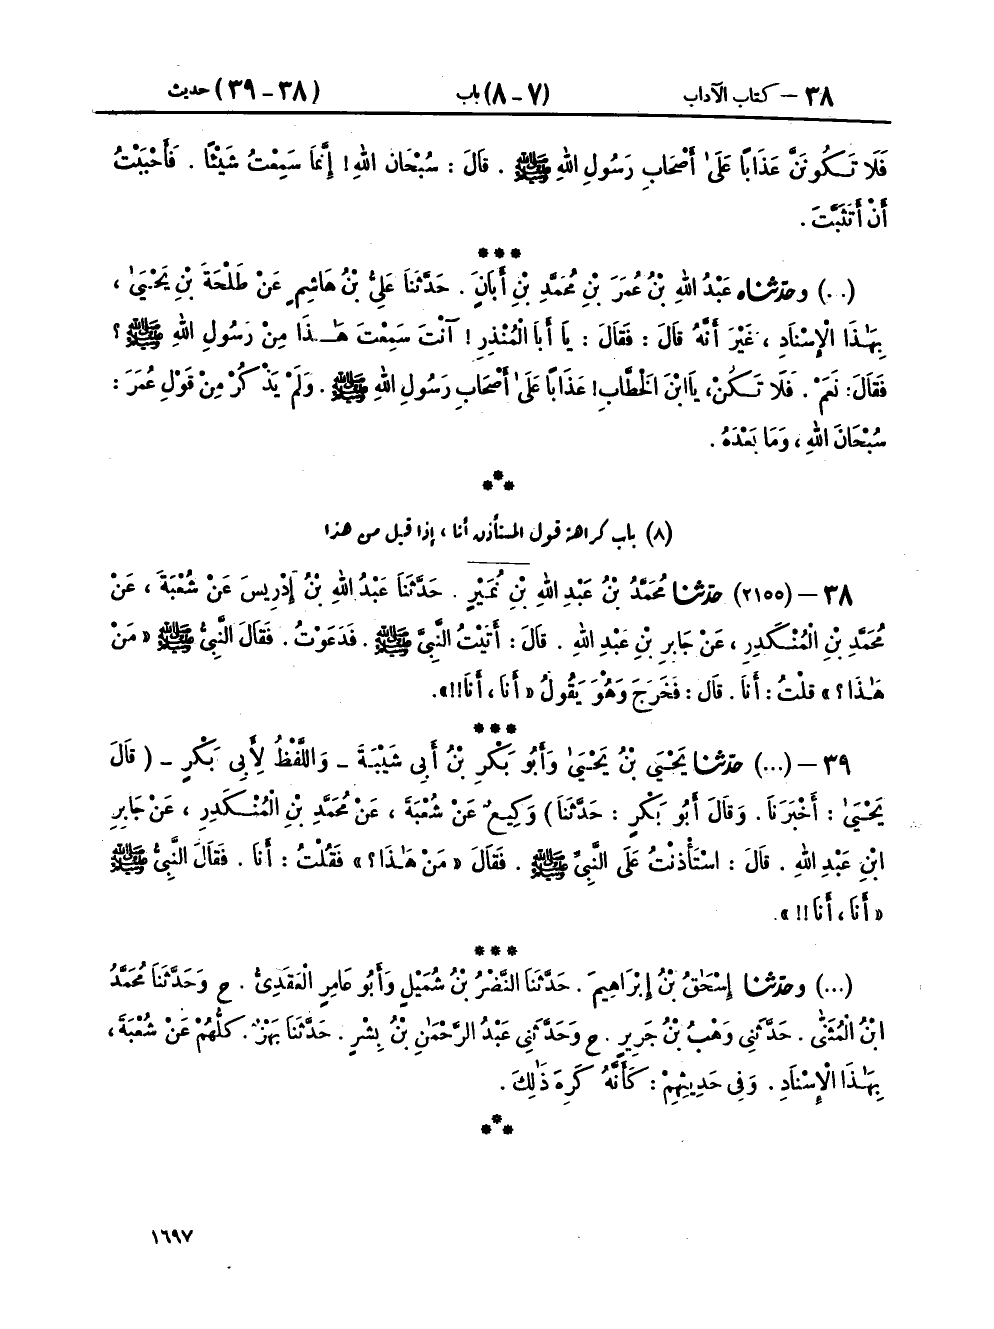 ٣٨ – كتاب الآداب (٧ – ٨) باب (٣٨ – ٣٩) حديث
فَلَا تَكُونَنَّ عَذَابًا عَلَىٰ أَصْحَابِ رَسُولِ اللهِ ﷺ . قَالَ : سُبْحَانَ اللهِ ! إِنَّمَا سَمِعْتُ شَيْئًا . فَأَحْبَبْتُ
أَنْ أَتَثَبَّتَ .
***
(...) وحدّثناه عَبْدُ اللهِ بْنُ عُمَرَ بْنِ مُحَمَّدِ بْنِ أَبَانَ . حَدَّثَنَا عَلِيُّ بْنُ هَاشِمٍ عَنْ طَلْحَةَ بْنِ يَحْيَىٰ ،
بِهَٰذَا الْإِسْنَادِ ، غَيْرَ أَنَّهُ قَالَ : فَقَالَ : يَا أَبَا الْمُنْذِرِ ! آنْتَ سَمِعْتَ هَٰذَا مِنْ رَسُولِ اللهِ ﷺ ؟
فَقَالَ : نَعَمْ . فَلَا تَكُنْ ، يَا ابْنَ الْخَطَّابِ ! عَذَابًا عَلَىٰ أَصْحَابِ رَسُولِ اللهِ ﷺ . وَلَمْ يَذْكُرْ مِنْ قَوْلِ عُمَرَ :
سُبْحَانَ اللهِ ، وَمَا بَعْدَهُ .
***
(٨) باب كراهة قول المستأذن أنا ، إذا قيل من هذا
٣٨ – (٢١٥٥) حدّثنا مُحَمَّدُ بْنُ عَبْدِ اللهِ بْنِ نُمَيْرٍ . حَدَّثَنَا عَبْدُ اللهِ بْنُ إِدْرِيسَ عَنْ شُعْبَةَ ، عَنْ
مُحَمَّدِ بْنِ الْمُنْكَدِرِ ، عَنْ جَابِرِ بْنِ عَبْدِ اللهِ . قَالَ : أَتَيْتُ النَّبِيَّ ﷺ . فَدَعَوْتُ . فَقَالَ النَّبِيُّ ﷺ « مَنْ
هَٰذَا ؟ » قُلْتُ : أَنَا . قَالَ : فَخَرَجَ وَهُوَ يَقُولُ « أَنَا ، أَنَا !! » .
***
٣٩ – (...) حدّثنا يَحْيَى بْنُ يَحْيَىٰ وَأَبُو بَكْرِ بْنُ أَبِي شَيْبَةَ – وَاللَّفْظُ لِأَبِي بَكْرٍ – ( قَالَ
يَحْيَىٰ : أَخْبَرَنَا . وَقَالَ أَبُو بَكْرٍ : حَدَّثَنَا ) وَكِيعٌ عَنْ شُعْبَةَ ، عَنْ مُحَمَّدِ بْنِ الْمُنْكَدِرِ ، عَنْ جَابِرِ
ابْنِ عَبْدِ اللهِ . قَالَ : اسْتَأْذَنْتُ عَلَى النَّبِيِّ ﷺ . فَقَالَ « مَنْ هَٰذَا ؟ » فَقُلْتُ : أَنَا . فَقَالَ النَّبِيُّ ﷺ
« أَنَا ، أَنَا !! » .
***
(...) وحدّثنا إِسْحَٰقُ بْنُ إِبْرَاهِيمَ . حَدَّثَنَا النَّضْرُ بْنُ شُمَيْلٍ وَأَبُو عَامِرٍ الْعَقَدِيُّ . ح وَحَدَّثَنَا مُحَمَّدُ
ابْنُ الْمُثَنَّىٰ . حَدَّثَنِي وَهْبُ بْنُ جَرِيرٍ . ح وَحَدَّثَنِي عَبْدُ الرَّحْمَٰنِ بْنُ بِشْرٍ . حَدَّثَنَا بَهْزٌ . كُلُّهُمْ عَنْ شُعْبَةَ ،
بِهَٰذَا الْإِسْنَادِ . وَفِي حَدِيثِهِمْ : كَأَنَّهُ كَرِهَ ذَٰلِكَ .
***
١٦٩٧